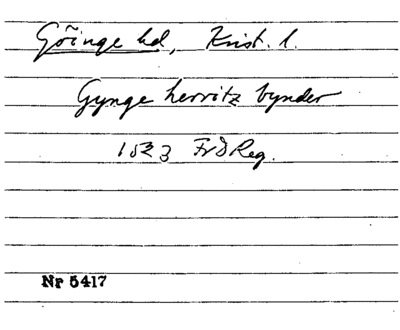 Göinge hd, Krist. l.
Gynge herritz bynder
1523 Fr I Reg.
Nr 5417